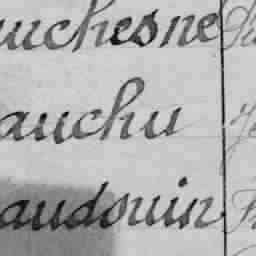 uchesne
auchu
audouin